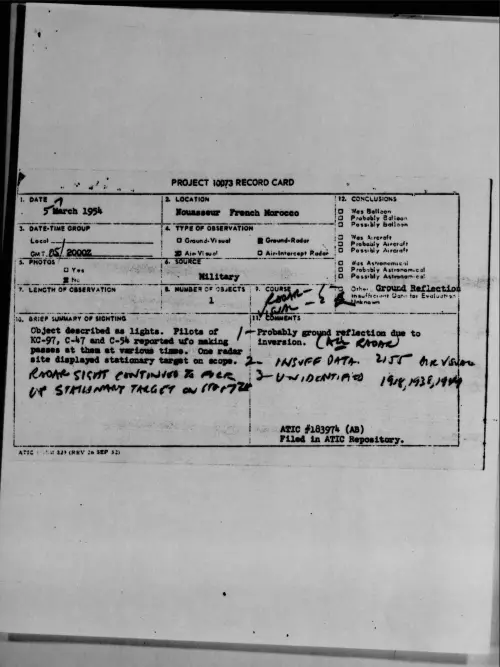 PROJECT 10073 RECORD CARD
1. DATE
5 March 1954
2. LOCATION
Nouasseur French Morocco
12. CONCLUSIONS
Was Balloon
Probably Balloon
Possibly Balloon
Was Aircraft
Probably Aircraft
Possibly Aircraft
Was Astronomical
Probably Astronomical
Possibly Astronomical
Other Ground Reflection
Insufficient Data for Evaluation
Unknown
3. DATE-TIME GROUP
Local
GMT 05/2000Z
4. TYPE OF OBSERVATION
Ground-Visual
Ground-Radar
Air-Visual
Air-Intercept Radar
5. PHOTOS
Yes
No
6. SOURCE
Military
7. LENGTH OF OBSERVATION
8. NUMBER OF OBJECTS
1
9. COURSE
RADAR
VISUAL
10. BRIEF SUMMARY OF SIGHTING
Object described as lights. Pilots of
KC-97, C-47 and C-54 reported ufo making
passes at them at various times. One radar
site displayed stationary target on scope.
RADAR SIGHT CONTINUED TO PICK
UP STATIONARY TARGET ON
11. COMMENTS
1- Probably ground reflection due to
inversion. (ALL RADAR)
2- INSUFF DATA. 2155 AIR VISUAL
3- UNIDENTIFIED 1918, 1938, 1949
ATIC #183974 (AB)
Filed in ATIC Repository.
ATIC FORM 329 (REV 26 SEP 52)